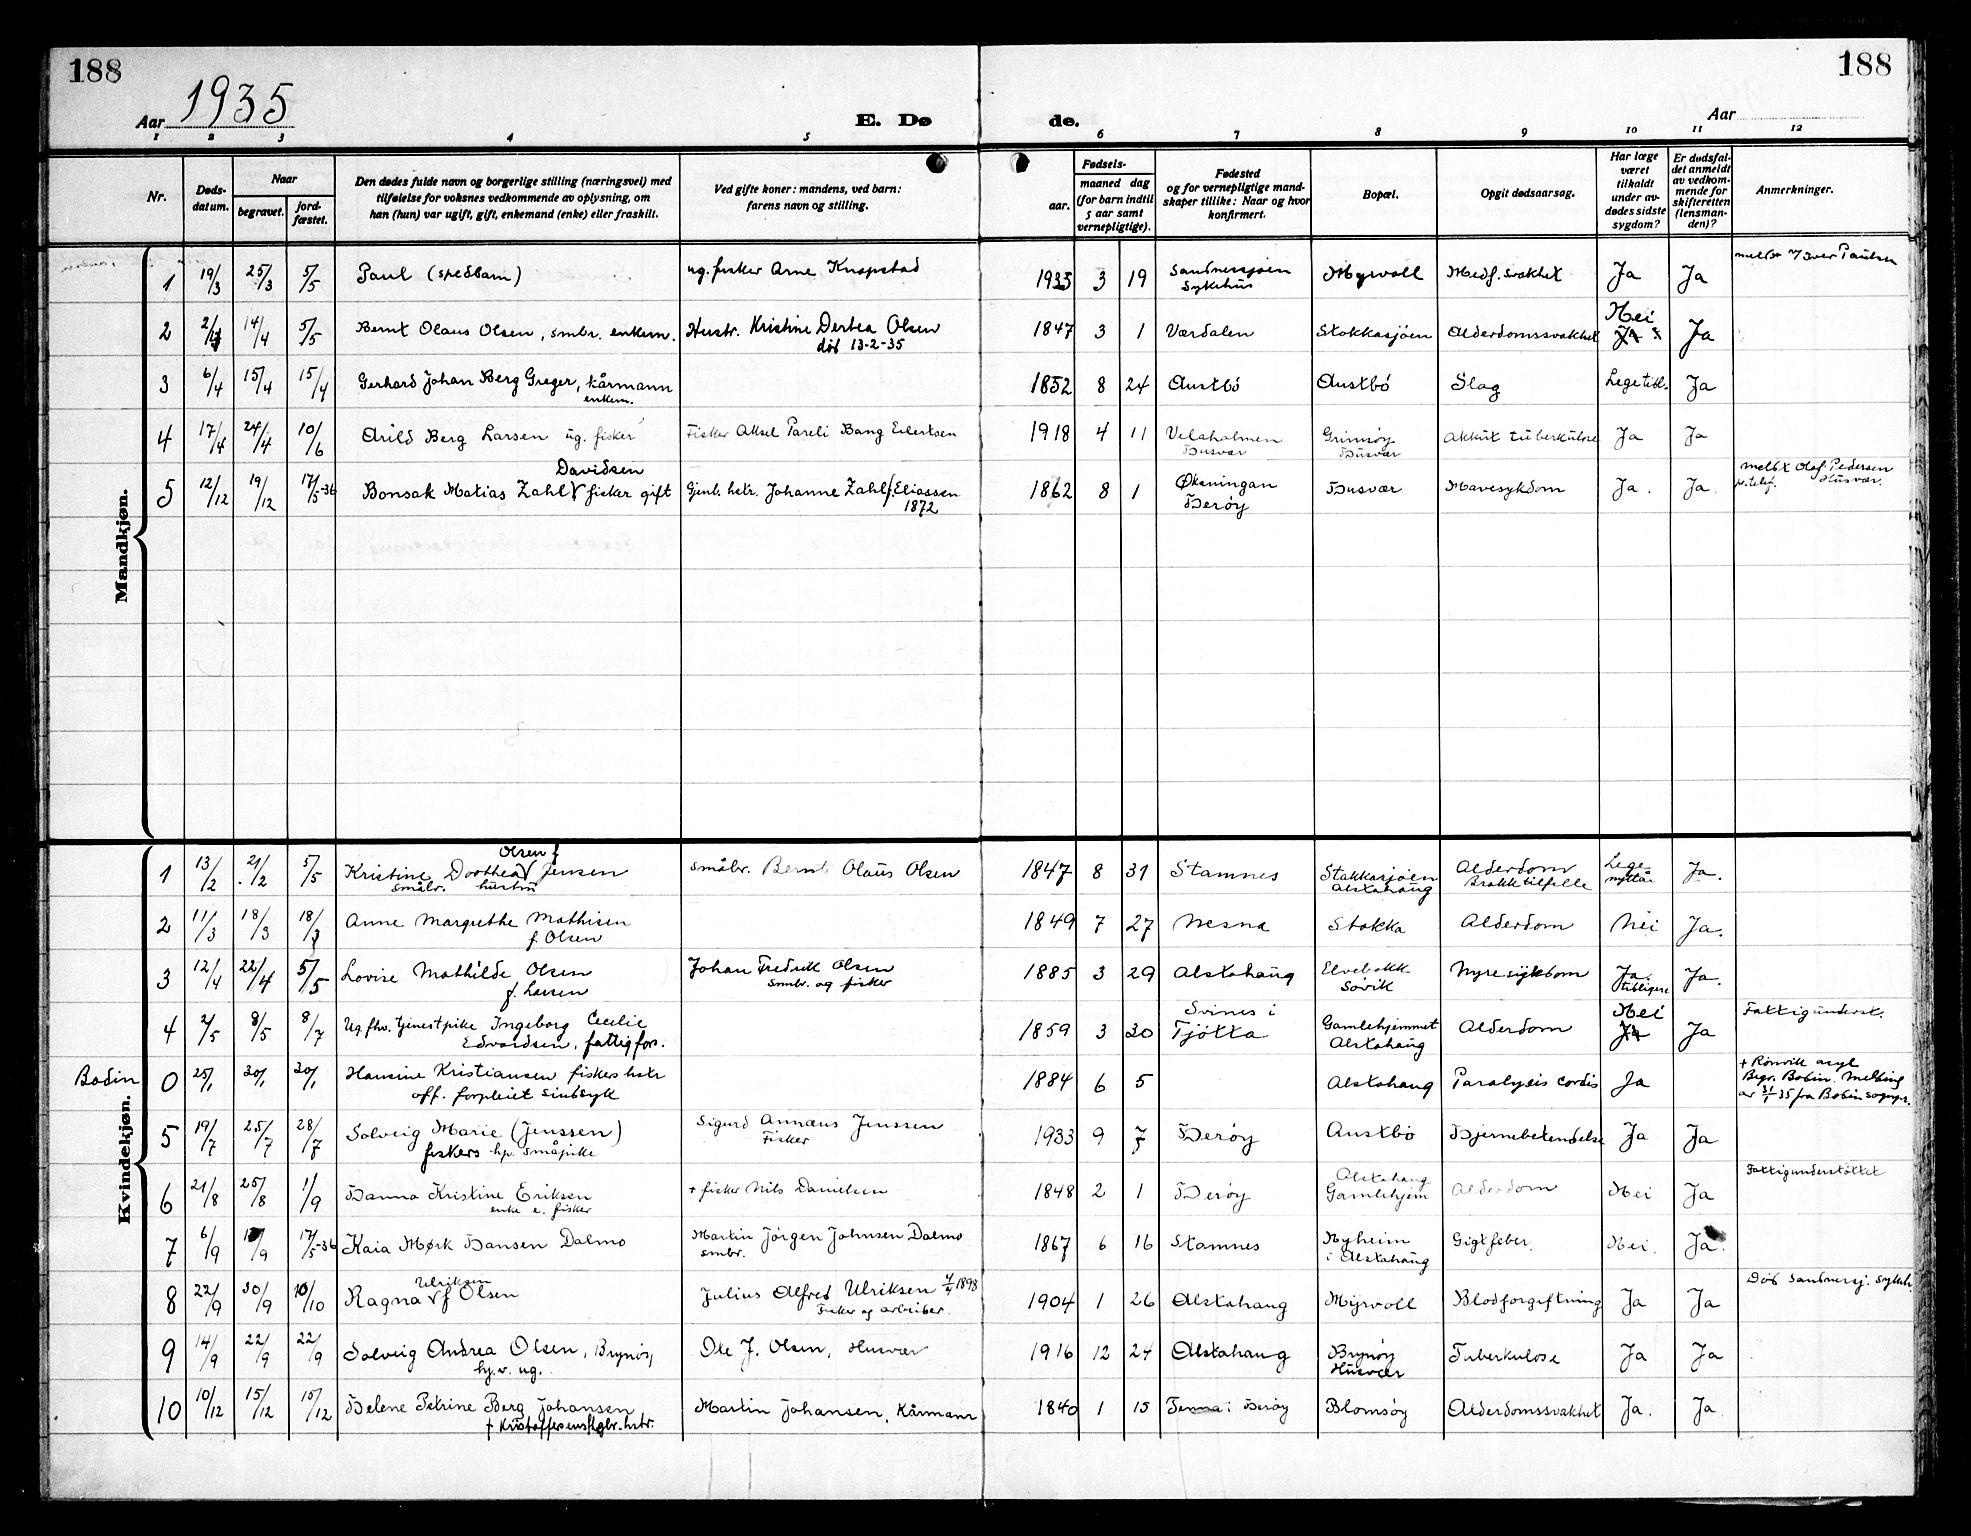 188
188
Aar 1935
E. Dø
de.
Aar
1 2 3 4 5 6 7 8 9 10 11 12
Nr.
Døds-
datum.
Naar
begravet.
jord-
fæstet.
Den dødes fulde navn og borgerlige stilling (næringsvei) med
tilføielse for voksnes vedkommende av oplysning, om
han (hun) var ugift, gift, enkemand (enke) eller fraskilt.
Ved gifte koner: mandens, ved barn:
farens navn og stilling.
Fødsels-
aar.
maaned dag
(for barn indtil
5 aar samt
vernepligtige).
Fødested
og for vernepligtige mand-
skaper tillike: Naar og hvor
konfirmert.
Bopæl.
Opgit dødsaarsag.
Har læge
været
tilkaldt
under av-
dødes sidste
sygdom?
Er dødsfal-
det anmeldt
av vedkom-
mende for
skifteretten
(lensman-
den)?
Anmerkninger.
Mandkjøn.
1 19/3 25/3 5/5 Paul (spedbarn) ug. fisker Arne Knopstad 1935 3 19 Sandnessjøen Sykehus Myrvoll Medf. svakhet Ja Ja Iver Paulsen
2 14/4 5/5 Bernt Olaus Olsen, smbr. enkem. Hustr. Kristine Dortea Olsen død 13-2-35 1847 3 1 Værdalen Stokkasjöen Alderdomssvakhet Nei Ja
3 6/4 15/4 15/4 Gerhard Johan Berg Greger, kårmann enkem. 1852 8 24 Austbö Austbö Slag Lege Ja
4 17/4 24/4 10/6 Arild Berg Larsen ug. fisker Fisker Aksel Pareli Bang Eilertsen 1918 4 11 Velsholmen Husvær Grimsøy Husvær Akkut tuberkulose Ja Ja
5 12/12 19/12 17/5-36 Bonsak Matias Zahl Davidsen fisker gift Gjenl. hstr. Johanne Zahl f. Eliassen 1872 1862 8 1 Øksningan Herøy Husvær Mavesykdom Ja. Ja. meldt Olaf Pedersen Husvær. pr. telef.
Kvindekjøn.
1 13/2 21/2 5/5 Kristine Dorthea Olsen f Jensen småbr. hustru småbr. Bernt Olaus Olsen 1847 8 31 Stamnes Stokkasjöen Alstahaug Alderdom Brakktilfelle Lege Ja.
2 11/3 18/3 18/3 Anne Margrethe Mathisen f. Olsen 1849 7 27 Nesna Stokka Alderdom Nei Ja.
3 12/4 22/4 5/5 Lovise Mathilde Olsen f. Larsen Johan Fredrik Olsen smbr. og fisker 1885 3 29 Alstahaug Elvebakk Søvik Nyresykdom Ja. tidligere Ja.
4 2/5 8/5 8/7 Ug. fhv. tjenestpike Ingeborg Cecilie Edvardsen, fattigfors. 1859 3 30 Svines i Tjötta Gamlehjemmet Alstahaug Alderdom Nei Ja Fattigunderst.
Bodin 0 25/1 30/1 30/1 Hansine Kristiansen fiskers hstr off. forpleiet sindsyk 1884 6 5 Alstahaug Paralysis cordis Ja + Rønvik asyl Begr. Bodin. Melding av 31/1 35 fra Bodin sognepr.
5 19/7 25/7 28/7 Solveig Marie (Jenssen) fiskers hp. småpike Sigurd Annæus Jenssen Fisker 1933 9 7 Herøy Austbø Hjernebetendelse Ja Ja
6 21/8 25/8 1/9 Hanna Kristine Eriksen enke e. fisker + fisker Nils Danielsen 1848 2 1 Herøy Alstahaug Gamlehjem Alderdom Nei Ja Fattigunderstöttet
7 6/9 17/5-36 Kaia Mørk Hansen Dalmo Martin Jörgen Johnsen Dalmo smbr. 1867 6 16 Stamnes Nyheim i Alstahaug Gigtfeber. Nei. Ja.
8 22/9 30/9 10/10 Ragna Ulriksen f Olsen Julius Alfred Ulriksen 1898 Fisker og arbeider. 1904 1 26 Alstahaug Myrvoll Blodforgiftning Ja Ja Död Sandnessj. sykeh.
9 14/9 22/9 22/9 Solveig Andrea Olsen, Brynöy hp. v. ug. Ole J. Olsen, Husvær 1916 12 24 Alstahaug Brynöy Husvær Tuberkulose Ja Ja
10 10/12 15/12 15/12 Helene Petrine Berg Johansen f Kristoffersens hstr. Martin Johansen, Kårmann 1840 1 15 Tenna i Herøy Blomsöy Alderdomssvakhet Ja. Ja.